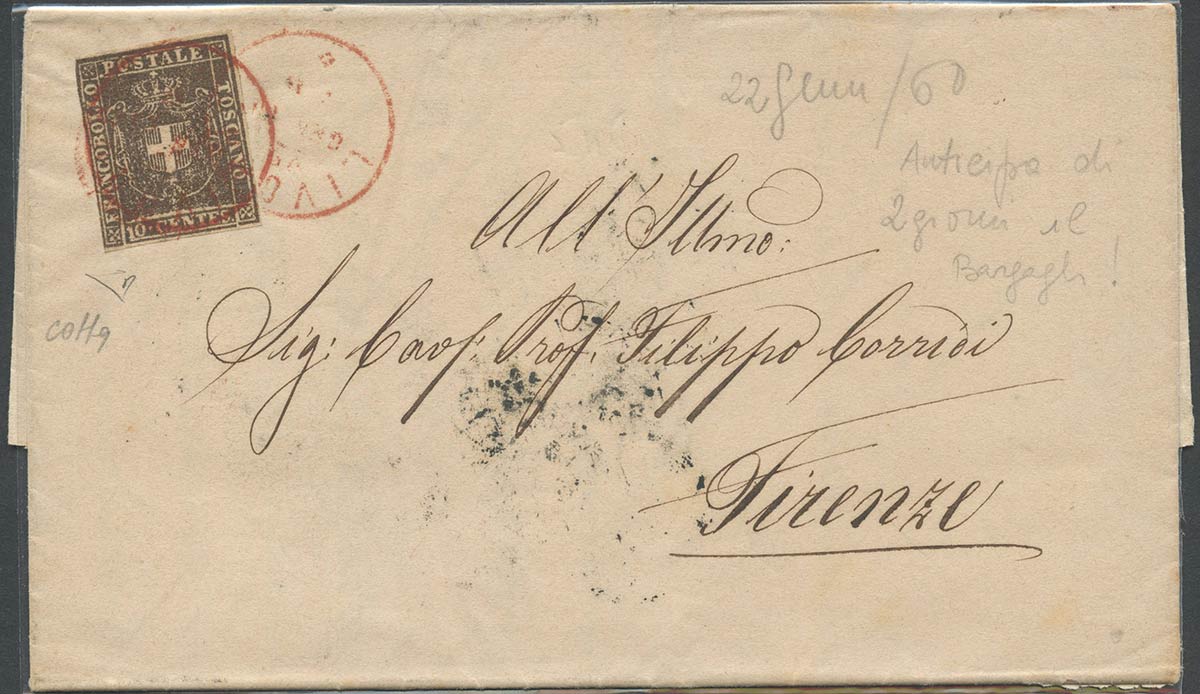 FRANCOBOLLO
POSTALE
TOSCANO
10 CENTES
LIVO
22 Genn/60
Anticipa di
2 giorni il
Bargagli!
All' Illmo:
Sig: Cavf: Prof. Filippo Corridi
Firenze